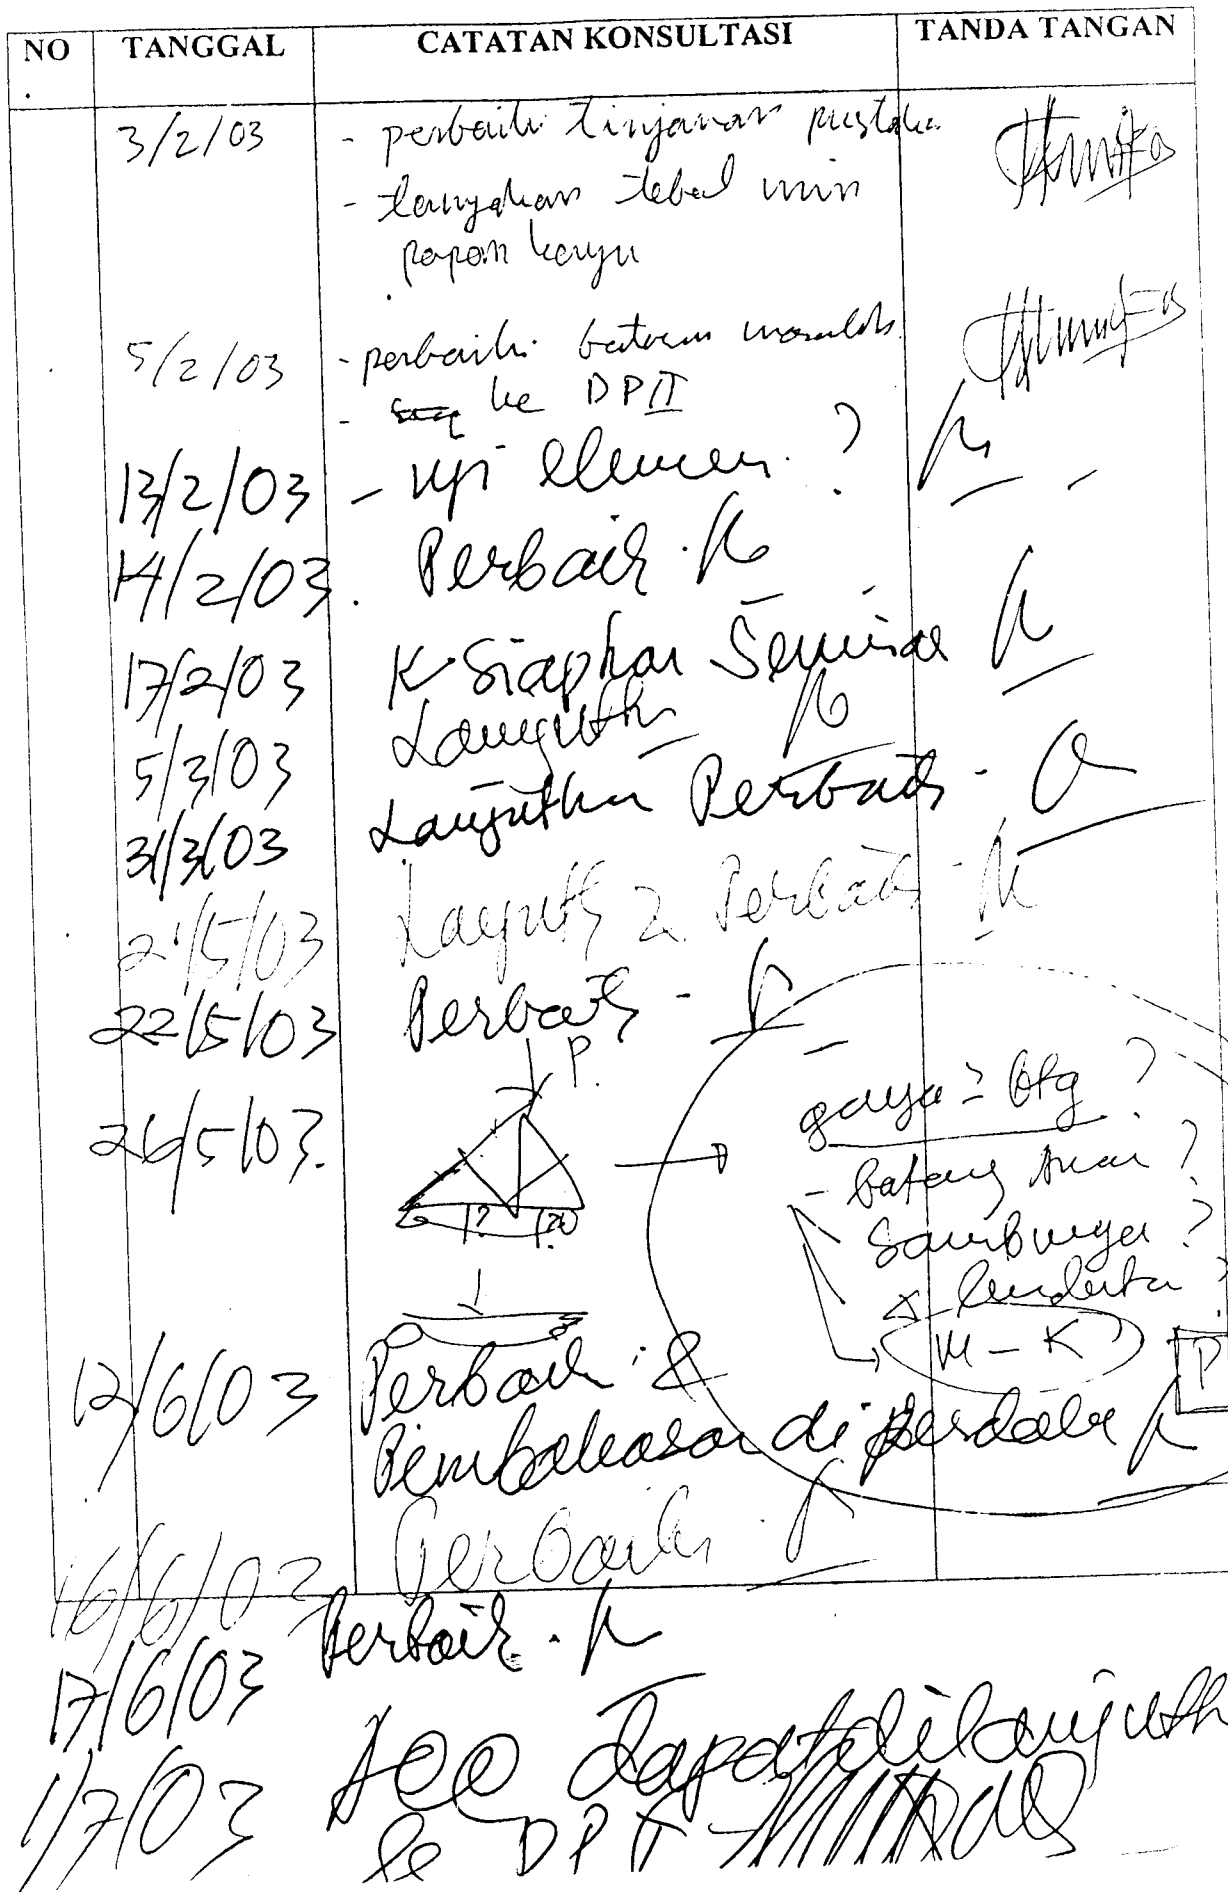 NO TANGGAL CATATAN KONSULTASI TANDA TANGAN
.
3/2/03 - perbaiki tinjauan pustaka
- tanyakan tebal min
papan kayu
5/2/03 - perbaiki batasan masalah
- ke DP II
13/2/03 - uji elemen ?
14/2/03. Perbaiki
17/2/03 Siapkan Seminar
5/3/03 Lanjutk
31/3/03 Lanjutkan Perbaik
21/5/03 Lanjutk 2 Perbaik
22/5/03 Perbaik -
P.
26/5/03. gaya = btg ?
- batang ?
? 20
Sambungan ?
lendutan ?
M - K
P
12/6/03 Perbaiki &
Pembahasan di
16/6/03 Perbaiki
17/6/03 Perbaik.
1/7/03 Acc dapat dilanjutk
ke DP I